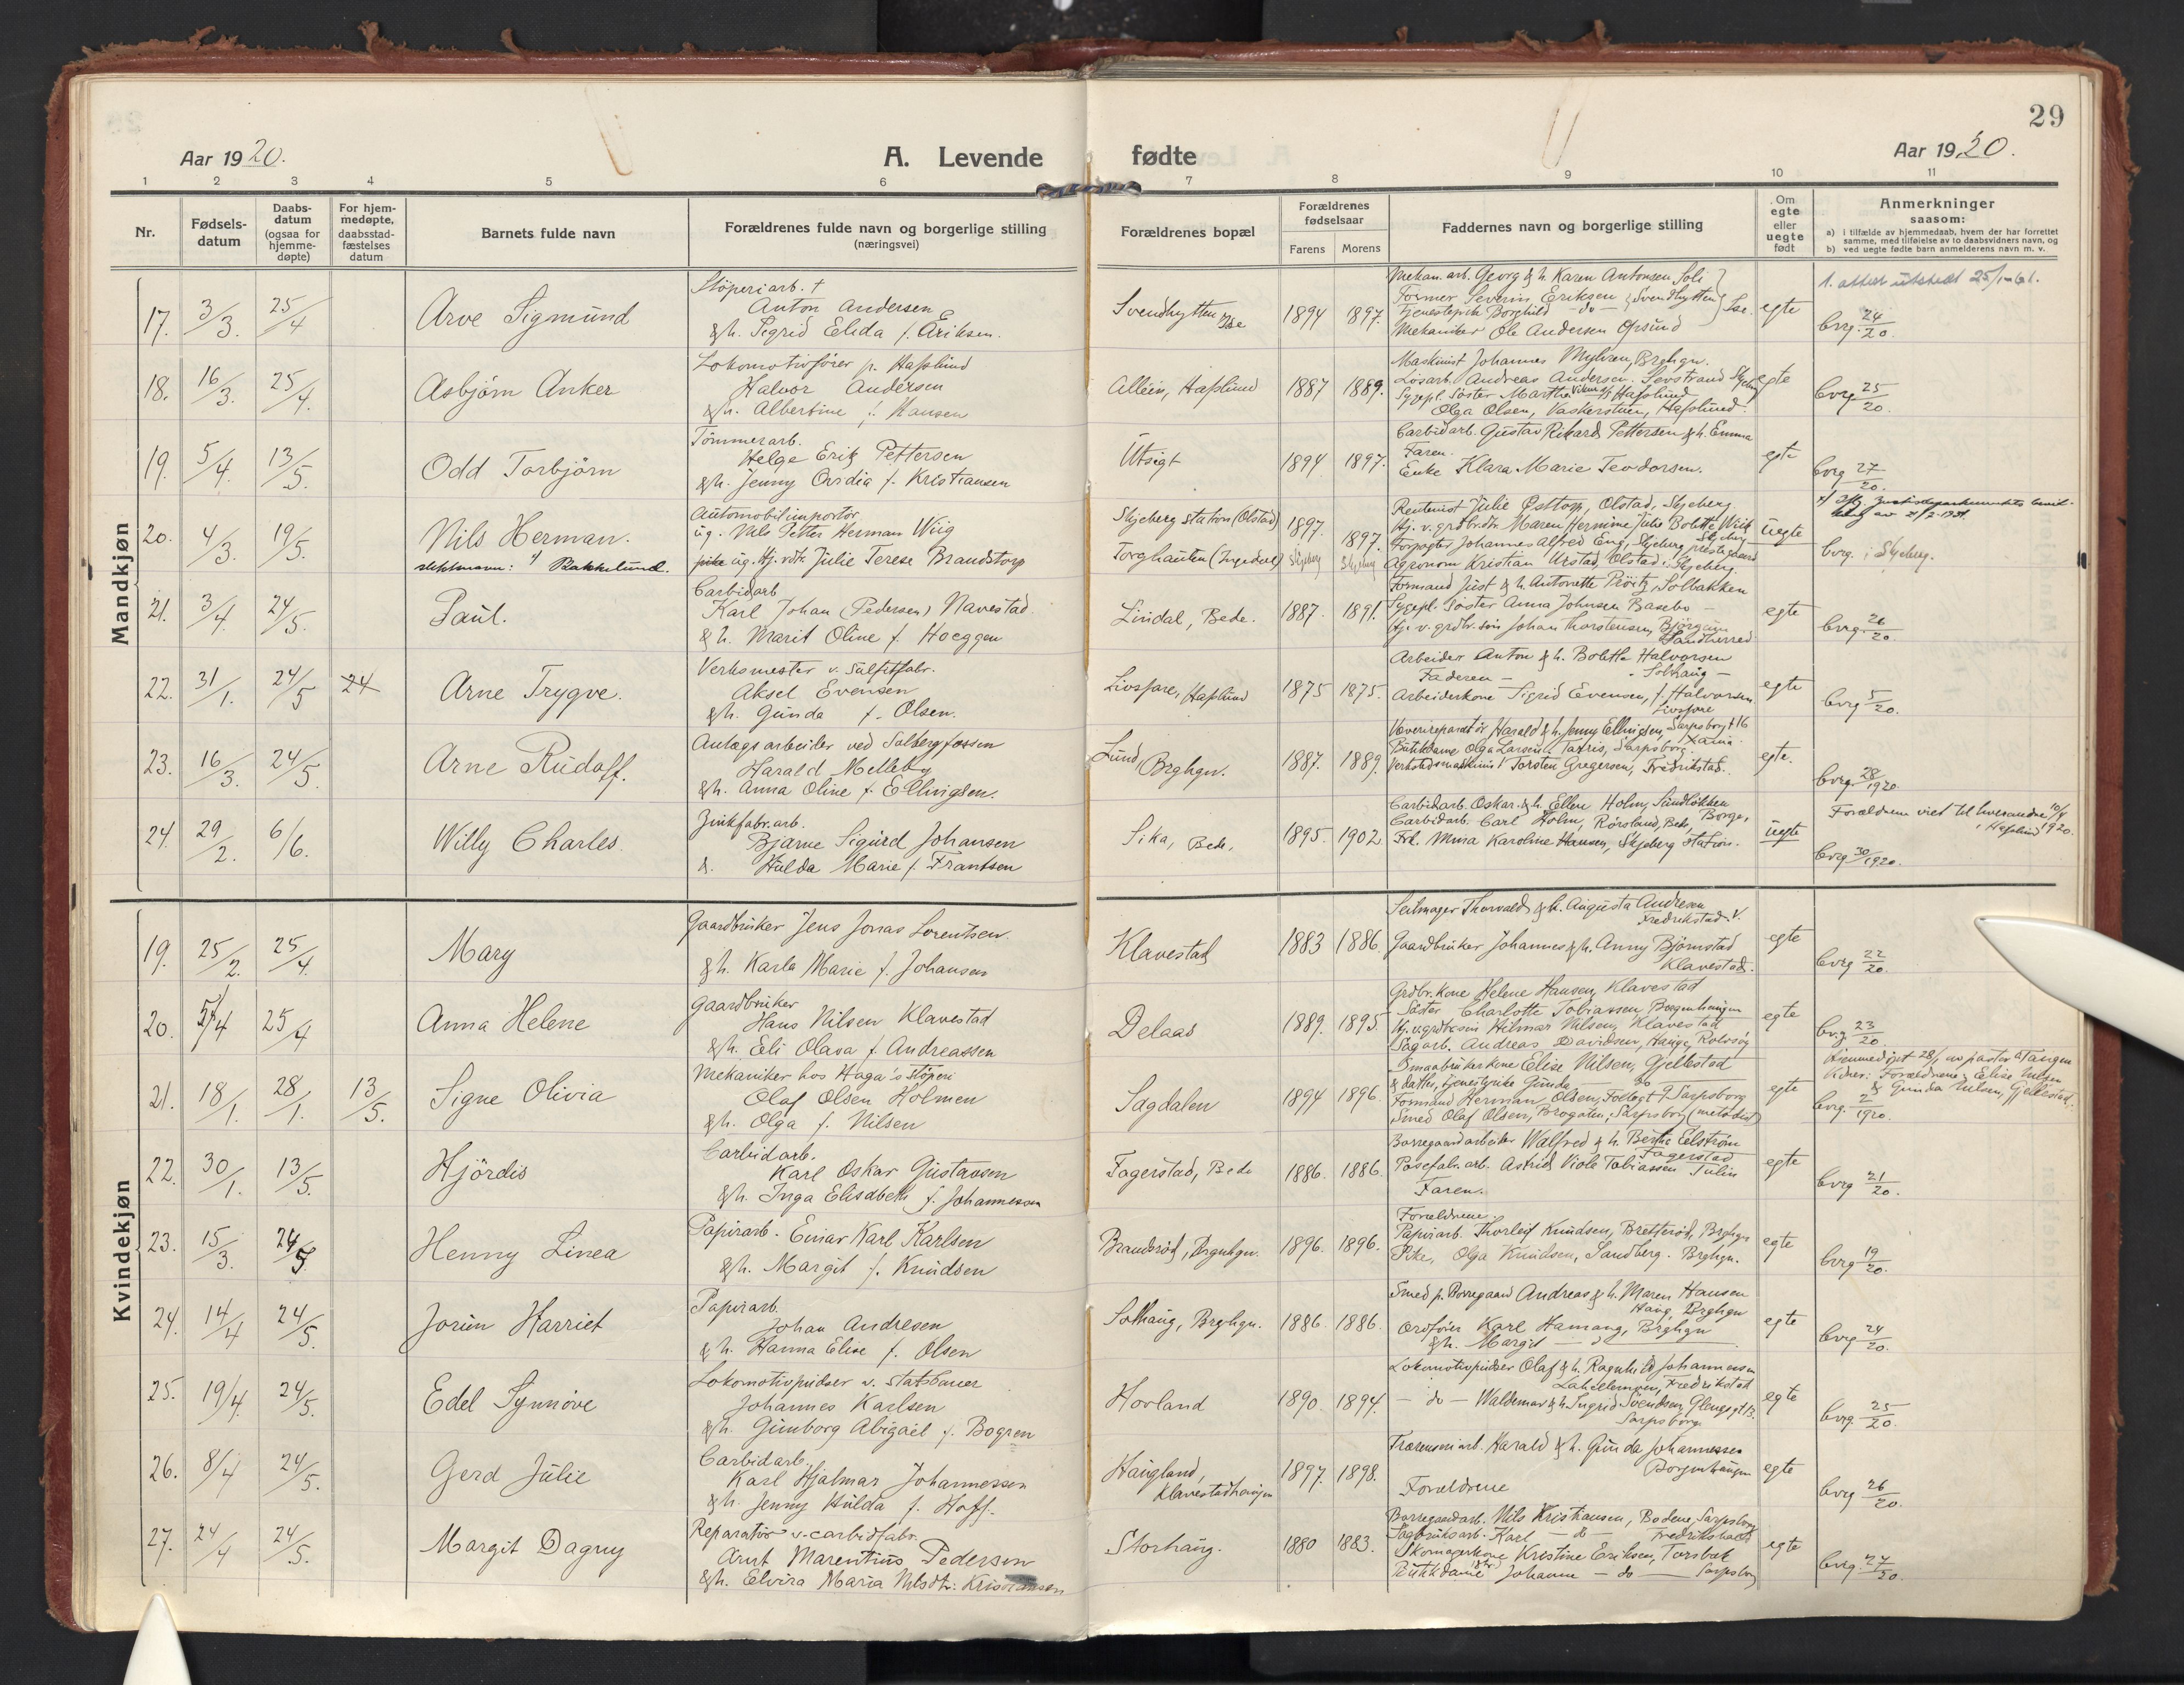 29
Aar 1920.
A. Levende fødte
Aar 1920.
1 2 3 4 5 6 7 8 9 10 11
Nr.
Fødsels-
datum
Daabs-
datum
(ogsaa for
hjemme-
døpte)
For hjem-
medøpte,
daabsstad-
fæstelses
datum
Barnets fulde navn
Forældrenes fulde navn og borgerlige stilling
(næringsvei)
Forældrenes bopæl
Forældrenes
fødselsaar
Farens Morens
Faddernes navn og borgerlige stilling
Om
egte
eller
uegte
født
Anmerkninger
saasom:
a) i tilfælde av hjemmedaab, hvem der har forrettet
samme, med tilføielse av to daabsvidners navn, og
b) ved uegte fødte barn anmelderens navn m. v.
Mandkjøn
17. 3/3. 25/4 Arve Sigmund
Støperiarb. †
Anton Andersen
& h. Sigrid Elida f. Eriksen.
Svendhytten Ise 1894 1897.
Mekan. arb. Georg & h. Karen Antonsen Soli
Former Severin Eriksen Svendhytten
Tjenestepike Borghild - do - Ise.
Mekaniker Ole Andersen Opsund
egte
1. attest utstedt
bvrg. 24/20.
18. 16/3. 25/4. Asbjørn Anker
Lokomotivfører p. Hafslund
Halvor Andersen
& h. Albertine f. Hansen
Alleen, Hafslund 1887 1889.
Maskinist Johannes Myhren, Brghgn.
Løsarb. Andreas Andersen
Sygepl. Søster Marthe Hafslund
Olga Olsen, Vaskerstuen, Hafslund.
egte
bvrg. 25/20.
19. 5/4. 13/5. Odd Torbjørn
Tømmerarb.
Helge Erik Pettersen
& h. Jenny Ovidia f. Kristiansen
Utsigt 1894 1897.
Carbidarb. Gustav Rikard Pettersen & h. Emma
Faren.
Enke Klara Marie Teodorsen.
egte
bvrg 27/20.
20. 4/3. 19/5. Nils Herman.
slektsnavn: Bakkelund.
Automobilimportør
ug. Nils Petter Herman Wiig
pike ug. Hj. v dtr. Julie Terese Brandstorp
Skjeberg station (Olstad) 1897. 1897.
Torghauten (Ingedal) Skjeberg Skjeberg
Rentenist Julie Østtorp, Olstad, Skjeberg.
Hj. v. grdbr. dtr. Maren Hermine Julie Bolette Wiik
Forpagter Johannes Alfred Eng, Skjeberg prestegaard
Agronom Kristian Ulstad, Olstad i Skjeberg.
uegte
bvrg. i Skjeberg.
21. 3/4. 24/5. Paul.
Carbidarb
Karl Johan (Pedersen) Navestad.
& h. Marit Oline f. Hoeggen
Lindal, Bede. 1887. 1891.
Formand Just & h. Antonette Prøitz, Solbakken
Sygepl. Søster Anna Johnsen Basebo -
Hj. v. grdbr. søn Johan Thorstensen,
egte
bvrg. 26/20.
22. 31/1. 24/5 24 Arne Trygve.
Verksmester v. Sulfitfabr.
Aksel Evensen
& h. Gunda f. Olsen.
Livsfare, Hafslund 1875 1875.
Arbeider Anton & h. Bolette Halvorsen
Faderen - Solhaug -
Arbeiderkone Sigrid Evensen, f. Halvorsen
Livsfare
egte
bvrg 5/20.
23. 16/3. 24/5. Arne Rudolf.
Anlægsarbeider ved Solbergfossen
Harald Melleby
& h. Anna Oline f. Ellingsen.
Lund, Brghgn. 1887. 1889.
Væverireparatør Harald & h. Jenny Ellingsen, Sarpsborg
Butikdame Olga Larsen, Sarpsborg.
Verkstedsmaskinist Torsten Gregersen, Fredrikstad.
egte.
bvrg. 28/1920.
24. 29/2. 6/6. Willy Charles.
Zinkfabr. arb.
Bjarne Sigurd Johansen
& Hulda Marie f. Frantsen
Sika, Bede, 1895. 1902.
Carbidarb. Oskar & h. Ellen Holm, Sandløkken
Carbidarb. Carl Holm, Rørsland, Bede, Borge,
Frk. Mina Karoline Hansen, Skjeberg station.
uegte
Forældrene viet til hverandre 10/4
i Hafslund 1920.
bvrg 30/1920.
Kvindekjøn
19. 25/2. 25/4. Mary
Gaardbruker Jens Jonas Lorentsen.
& h. Karla Marie f. Johansen
Klavestad 1883 1886.
Seilmager Thorvald & h. Augusta Andresen
Fredrikstad. V.
Gaardbruker Johannes & h. Anny Bjørnstad
Klavestad.
egte
bvrg 22/20.
20. 5/4 25/4 Anna Helene
Gaardbruker
Hans Nilsen Klavestad
& h. Eli Olava f. Andreassen
Delaas 1889. 1895.
Grdbr. kone Helene Hansen, Klavestad
Søster Charlotte Tobiassen, Borgenhaugen
Hj. v. grdbr. søn Hilmar Nilsen, Klavestad
Sagarb. Andreas Davidsen, Hauge, Rolvsøy
egte
bvrg 23/20.
21. 18/1. 28/1. 13/5. Signe Olivia
Mekaniker hos Haga's støperi
Olaf Olsen Holmen
& h. Olga f. Nilsen
Sagdalen 1894 1896.
Smaabrukerkone Elise Nilsen, Gjellestad
& datter, tjenestepike Gunda - do
Formand Herman Olsen, Sarpsborg
Smed Olaf Olsen, Brogaten, Sarpsborg (metodist)
egte
Hjemmedøpt 28/1 av pastor Tangen
Vidner: Forældrene, Elise Nilsen
& Gunda Nilsen, Gjellestad.
bvrg. 2/1920.
22. 30/1. 13/5. Hjørdis
Carbidarb.
Karl Oskar Gustavsen
& h. Inga Elisabeth f. Johannessen
Fagerstad, Bede 1886. 1886.
Borregaardarbeider Walfred & h. Berthe Eelstrøm
Fagerstad
Posefabr. arb. Astrid Viola Tobiassen Tulin
Faren.
egte
bvrg 21/20.
23. 15/3. 24/5 Henny Linea
Papirarb. Einar Karl Karlsen
& h. Margit f. Knudsen
Brandsrød, Brgnhgn. 1896. 1896.
Forældrene.
Papirarb. Thorleif Knudsen, Bretterød, Brghgn
Pike, Olga Knudsen, Sandberg. Brghgn.
egte
bvrg 19/20.
24. 14/4 24/5. Jorun Harriet
Papirarb.
Johan Andresen
& h. Hanna Elise f. Olsen
Solhaug, Brghgn. 1886. 1886.
Smed p. Borregaard Andreas & h. Maren Hansen
Haug, Brghgn
Ordfører Karl Hamang, Brghgn
& h. Margit - do -
egte
bvrg 24/20.
25. 19/4. 24/5. Edel Synnøve
Lokomotivpudser v. statsbaner
Johannes Karlsen
& h. Gunborg Abigael f. Bogren
Hovland 1890. 1894.
Lokomotivpudser Olaf & h. Ragnhild Johannessen
Lahellemoen, Fredrikstad
- do - Waldemar & h. Ingrid Svendsen, Glengsgt 13.
Sarpsborg
egte
bvrg 25/20.
26. 8/4 24/5. Gerd Julie
Carbidarb.
Karl Hjalmar Johannessen
& h. Jenny Hulda f. Hoff.
Haugland,
Klavestadhaugen 1897. 1898.
Træsnseriarb. Harald & h. Gunda Johannessen
Borgenhaugen
Forældrene
egte
bvrg 26/20.
27. 24/4 24/5. Margit Dagny
Reparatør v. carbidfabr.
Arnt Marentius Pedersen
& h. Elvira Maria Nilsdtr. Kristiansen
Storhaug. 1880 1883.
Borregaardarb. Nils Kristiansen, Bodene, Sarpsborg
Sagbruksarb. Karl - do - Fredrikshald
Skomagerkone Kristine Eriksen, Torsbæk
Butikdame Johanne - do - Sarpsborg
egte
bvrg. 27/20.